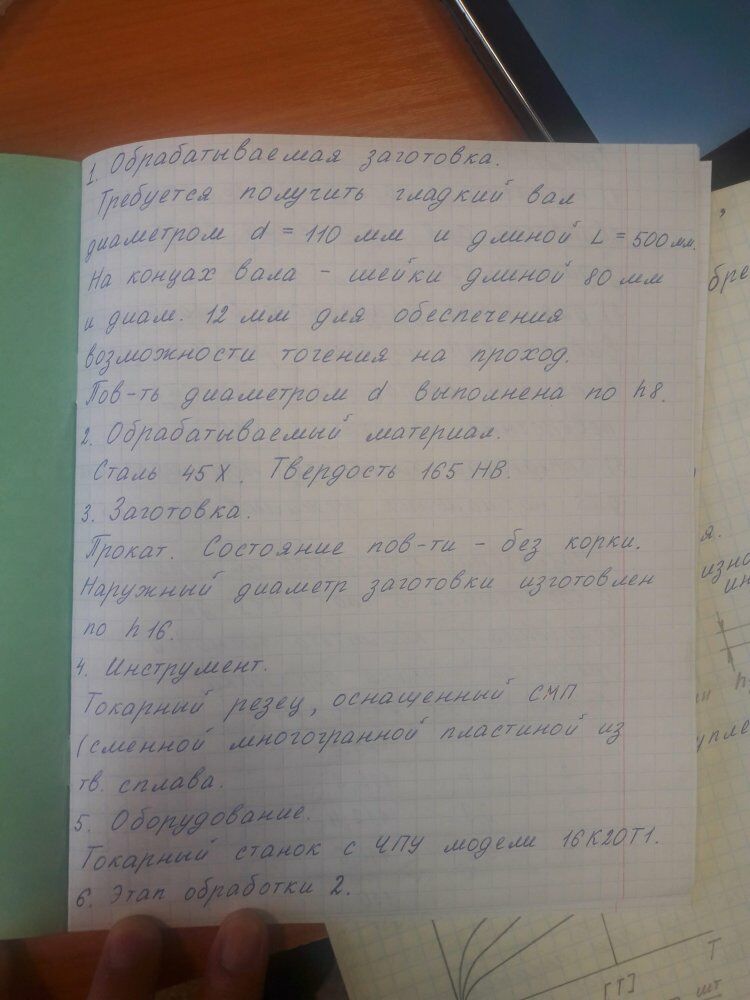 1. Обрабатываемая заготовка.
Требуется получить гладкий вал
диаметром d = 110 мм и длиной L = 500 мм.
На концах вала - шейки длиной 80 мм
и диам. 12 мм для обеспечения
возможности точения на проход.
Пов-ть диаметром d выполнена по h8.
2. Обрабатываемый материал.
Сталь 45Х. Твердость 165 НВ.
3. Заготовка.
Прокат. Состояние пов-ти - без корки.
Наружный диаметр заготовки изготовлен
по h16.
4. Инструмент.
Токарный резец, оснащенный СМП
(сменной многогранной пластиной из
тв. сплава.
5. Оборудование.
Токарный станок с ЧПУ модели 16К20Т1.
6. Этап обработки 2.
,
бре
я.
изно
ин
h
ии
упле
T
[T]
шт